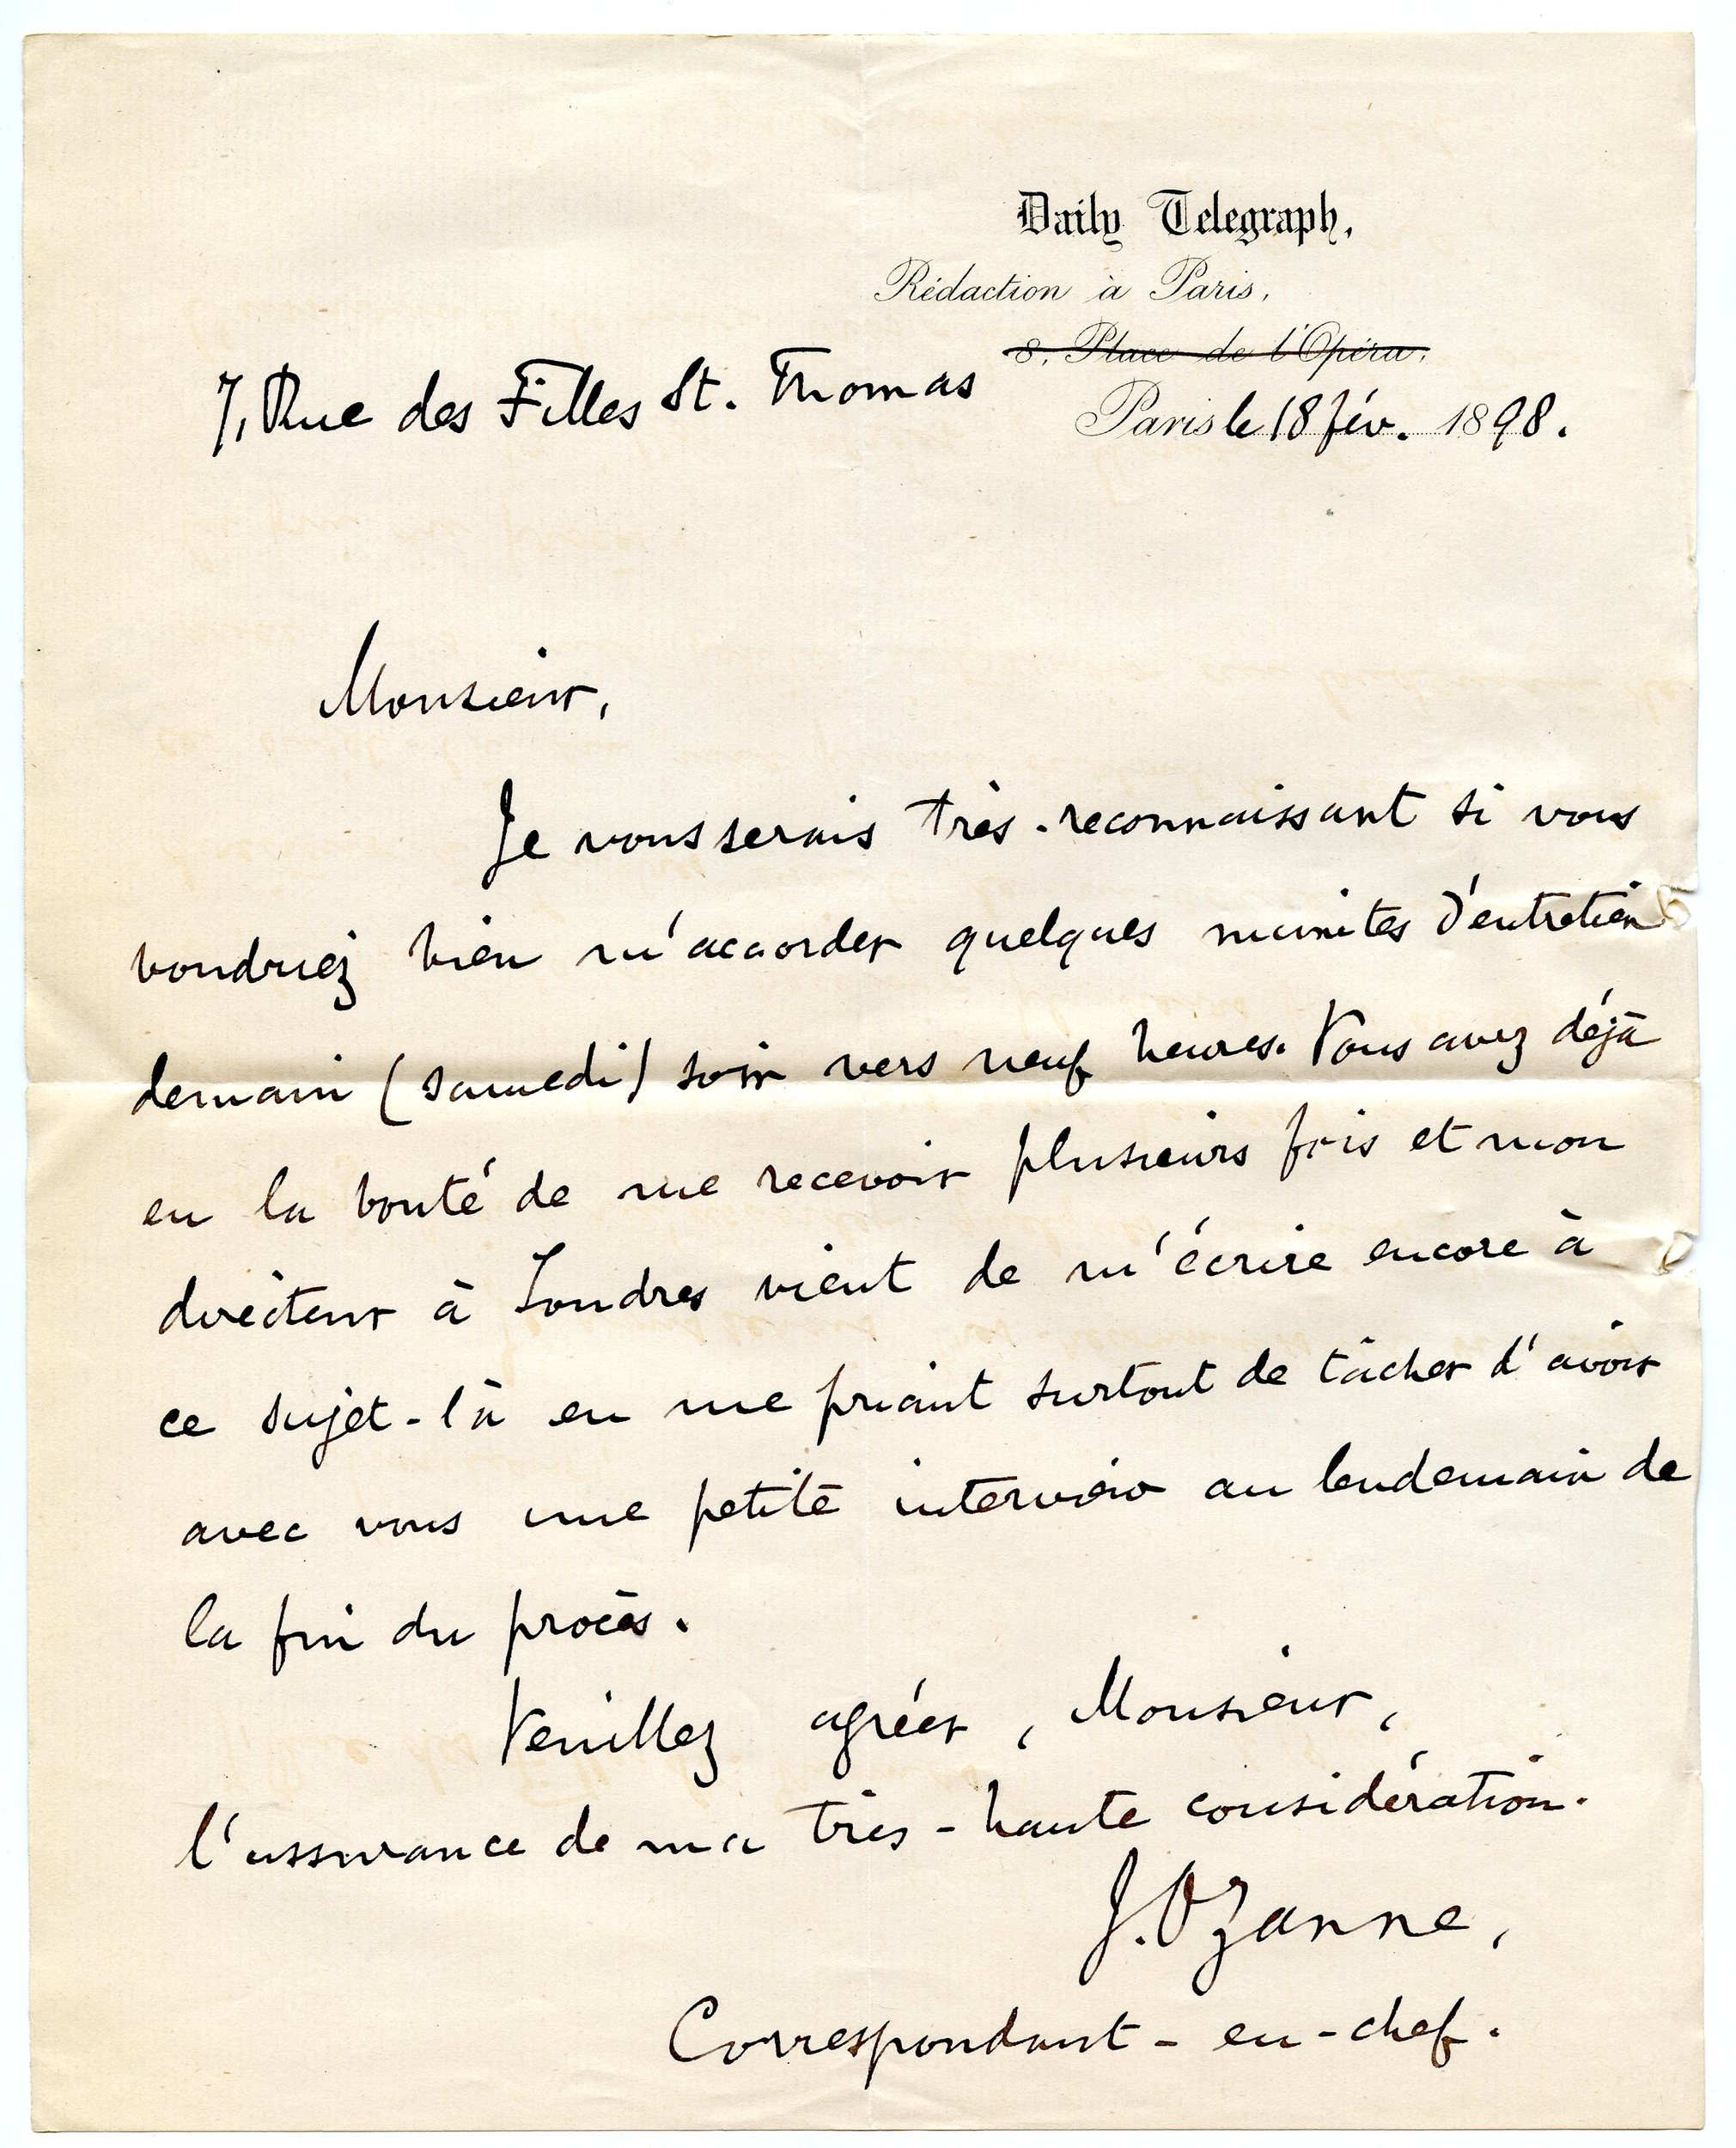 Daily Telegraph,
Rédaction à Paris,
8, Place de l'Opéra,
7, Rue des Filles St. Thomas
Paris le 18 fév. 1898.
Monsieur,
Je vous serais très-reconnaissant si vous
voudriez bien m'accorder quelques minutes d'entretien
demain (samedi) soir vers neuf heures. Vous avez déjà
eu la bonté de me recevoir plusieurs fois et mon
directeur à Londres vient de m'écrire encore à
ce sujet-là en me priant surtout de tâcher d'avoir
avec vous une petite interview au lendemain de
la fin du procès.
Veuillez agréer, Monsieur,
l'assurance de ma très-haute considération.
J. Ozanne,
Correspondant-en-chef.